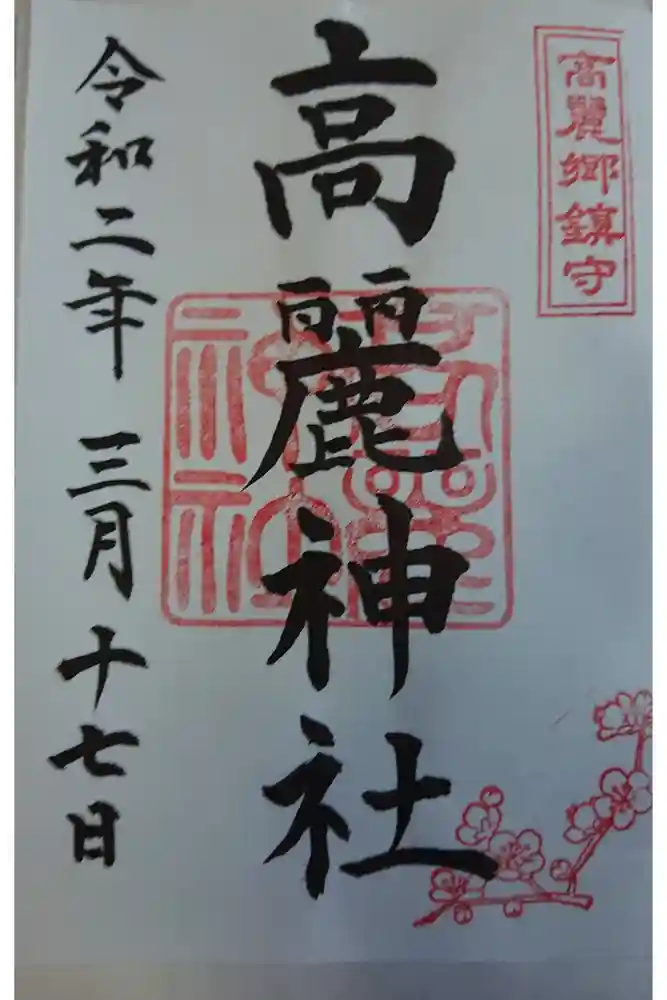 高麗郷鎮守
高麗神社
令和二年 三月 十七日